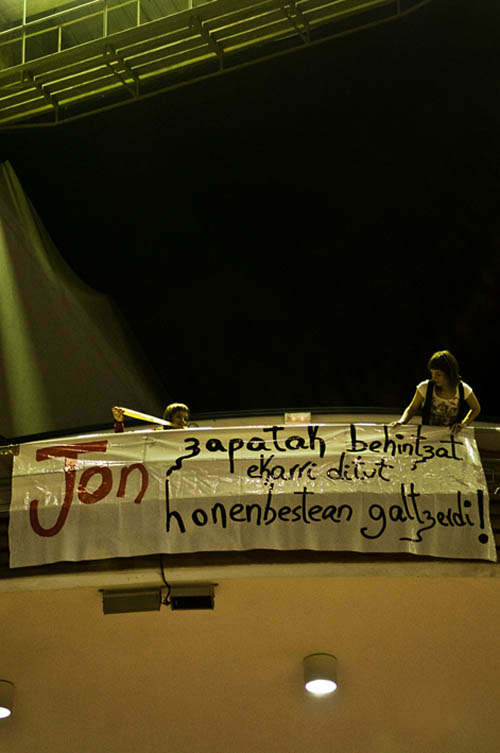 Jon
zapatak behintzat
ekarri ditut
honenbestean galtzerdi!